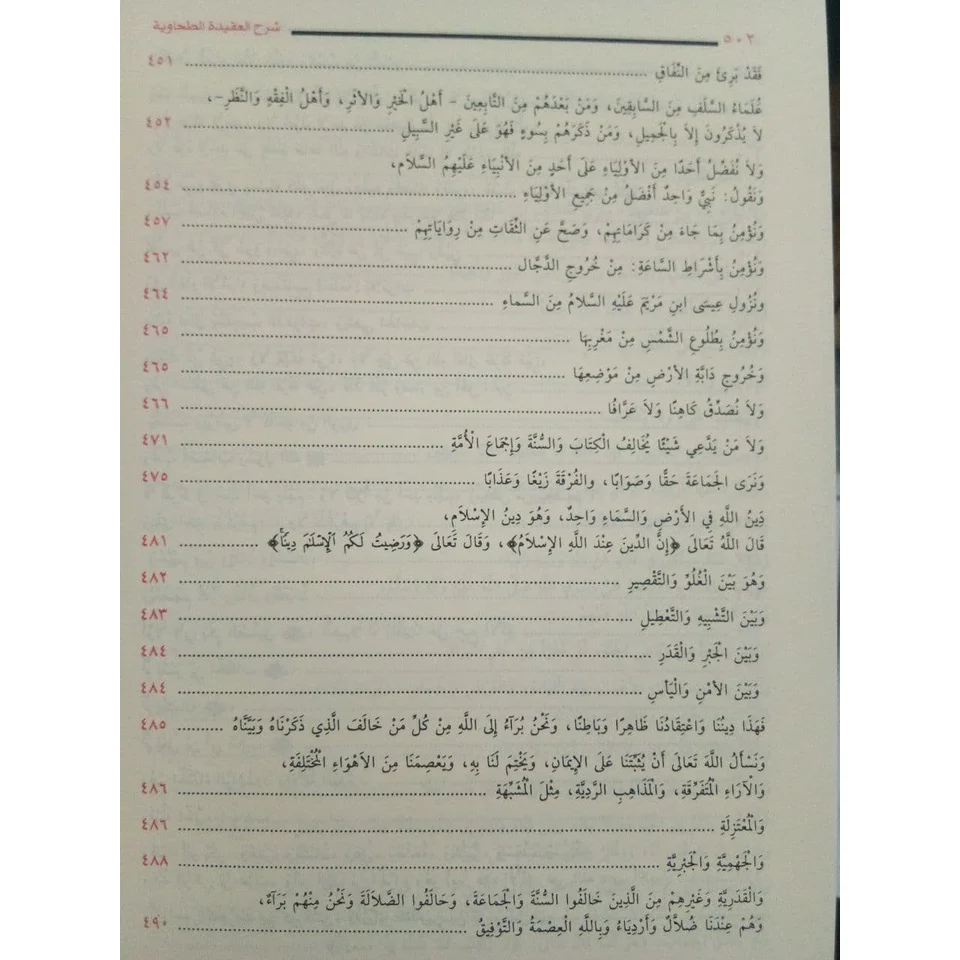 ٥٠٢ شرح العقيدة الطحاوية
فَقَدْ بَرِئَ مِنَ النِّفَاقِ ........ ٤٥١
عُلَمَاءُ السَّلَفِ مِنَ السَّابِقِينَ، وَمَنْ بَعْدَهُمْ مِنَ التَّابِعِينَ - أَهْلُ الْخَيْرِ وَالأَثَرِ، وَأَهْلُ الْفِقْهِ وَالنَّظَرِ-،
لاَ يُذْكَرُونَ إِلاَّ بِالْجَمِيلِ، وَمَنْ ذَكَرَهُمْ بِسُوءٍ فَهُوَ عَلَى غَيْرِ السَّبِيلِ ........ ٤٥٢
وَلاَ نُفَضِّلُ أَحَدًا مِنَ الأَوْلِيَاءِ عَلَى أَحَدٍ مِنَ الأَنْبِيَاءِ عَلَيْهِمُ السَّلاَم،
وَنَقُولُ: نَبِيٌّ وَاحِدٌ أَفْضَلُ مِنْ جَمِيعِ الأَوْلِيَاءِ ........ ٤٥٤
وَنُؤْمِنُ بِمَا جَاءَ مِنْ كَرَامَاتِهِمْ، وَصَحَّ عَنِ الثِّقَاتِ مِنْ رِوَايَاتِهِمْ ........ ٤٥٧
وَنُؤْمِنُ بِأَشْرَاطِ السَّاعَةِ: مِنْ خُرُوجِ الدَّجَّال ........ ٤٦٢
ونُزُولِ عِيسَى ابنِ مَرْيَمَ عَلَيْهِ السَّلامُ مِنَ السَّماءِ ........ ٤٦٤
وَنُؤْمِنُ بِطُلُوعِ الشَّمْسِ مِنْ مَغْرِبِهَا ........ ٤٦٥
وَخُرُوجِ دَابَّةِ الأَرْضِ مِنْ مَوْضِعِهَا ........ ٤٦٥
وَلاَ نُصَدِّقُ كَاهِنًا وَلاَ عَرَّافًا ........ ٤٦٦
وَلاَ مَنْ يَدَّعِي شَيْئًا يُخَالِفُ الْكِتَابَ وَالسُّنَّةَ وَإِجْمَاعَ الْأُمَّةِ ........ ٤٧١
وَنَرَى الْجَمَاعَةَ حَقًّا وَصَوَابًا، والفُرْقَةَ زَيْغًا وَعَذَابًا ........ ٤٧٥
دِينُ اللَّهِ فِي الأَرْضِ وَالسَّمَاءِ وَاحِدٌ، وَهُوَ دِينُ الإِسْلاَمِ،
قَالَ اللَّهُ تَعَالَى ﴿إِنَّ الدِّينَ عِنْدَ اللَّهِ الإِسْلاَمُ﴾، وَقَالَ تَعَالَى ﴿وَرَضِيتُ لَكُمُ ٱلْإِسْلَـٰمَ دِينًا﴾ ........ ٤٨١
وَهُوَ بَيْنَ الْغُلُوِّ وَالتَّقْصِيرِ ........ ٤٨٢
وَبَيْنَ التَّشْبِيهِ وَالتَّعْطِيلِ ........ ٤٨٣
وَبَيْنَ الْجَبْرِ وَالْقَدَرِ ........ ٤٨٤
وَبَيْنَ الأَمْنِ وَالْيَأْسِ ........ ٤٨٤
فَهَذَا دِينُنَا وَاعْتِقَادُنَا ظَاهِرًا وَبَاطِنًا، وَنَحْنُ بُرَآءُ إِلَى اللَّهِ مِنْ كُلِّ مَنْ خَالَفَ الَّذِي ذَكَرْنَاهُ وَبَيَّنَّاهُ ........ ٤٨٥
وَنَسْأَلُ اللَّهَ تَعَالَى أَنْ يُثَبِّتَنَا عَلَى الإِيمَانِ، وَيَخْتِمَ لَنَا بِهِ، وَيَعْصِمَنَا مِنَ الأَهْوَاءِ الْمُخْتَلِفَةِ،
وَالْآرَاءِ الْمُتَفَرِّقَةِ، وَالْمَذَاهِبِ الرَّدِيَّةِ، مِثْلَ الْمُشَبِّهَةِ ........ ٤٨٦
وَالْمُعْتَزِلَةِ ........ ٤٨٦
وَالْجَهْمِيَّةِ وَالْجَبْرِيَّةِ ........ ٤٨٨
وَالْقَدَرِيَّةِ وَغَيْرِهِمْ مِنَ الَّذِينَ خَالَفُوا السُّنَّةَ وَالْجَمَاعَةَ، وَحَالَفُوا الضَّلاَلَةَ وَنَحْنُ مِنْهُمْ بَرَآءٌ،
وَهُمْ عِنْدَنَا ضُلاَّلٌ وَأَرْدِيَاءُ وَبِاللَّهِ الْعِصْمَةُ وَالتَّوْفِيقُ ........ ٤٩٠